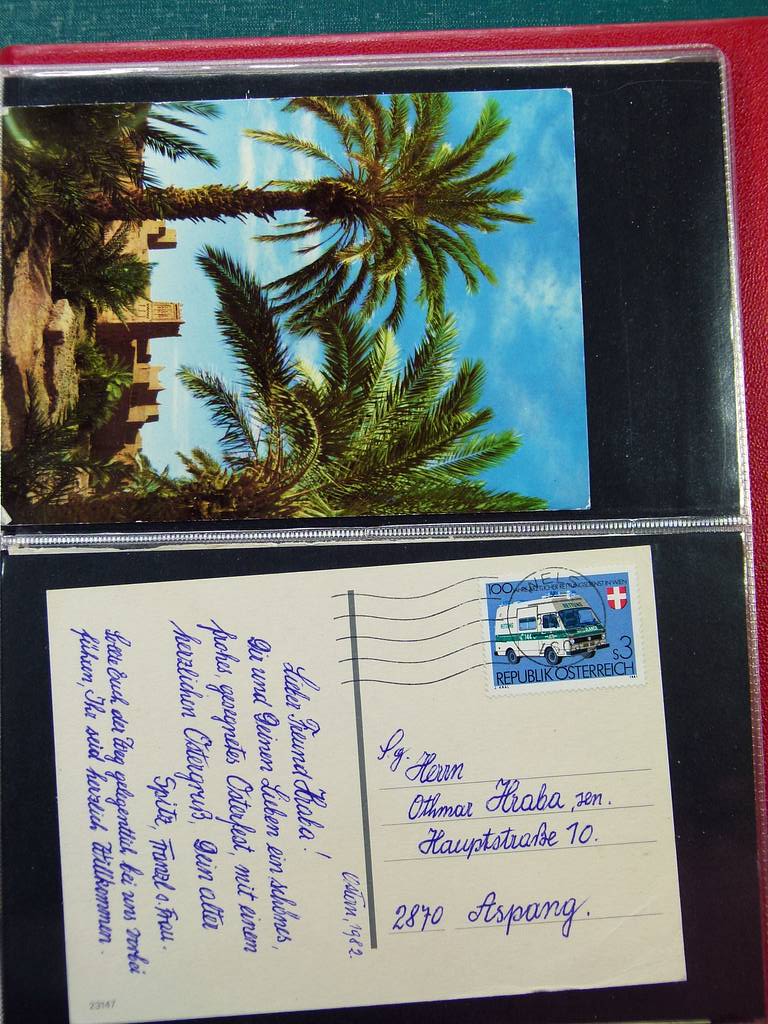 100 JAHRE ÄRZTLICHER RETTUNGSDIENST IN WIEN
RETTUNG
144
s3
REPUBLIK ÖSTERREICH
1981
S.g. Herrn
Othmar Hraba, sen.
Hauptstraße 10.
2870 Aspang.
Ostern, 1982.
Lieber Freund Hraba!
Dir und Deinen Lieben ein schönes,
frohes, gesegnetes Osterfest, mit einem
herzlichen Ostergruß, Dein alter
Spitz, Franzl s. Frau.
Sollte Euch der Weg gelegentlich bei uns vorbei
führen, Ihr seid herzlich Willkommen.
23147